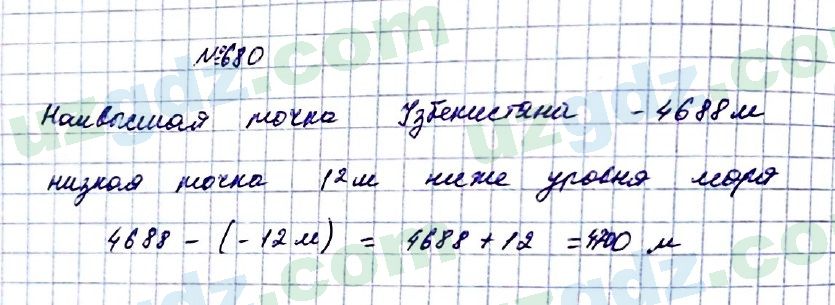 №680
Наивысшая точка Узбекистана - 4688 м
низкая точка 12 м ниже уровня моря
4688 - (-12 м) = 4688 + 12 = 4700 м
uzgdz.com